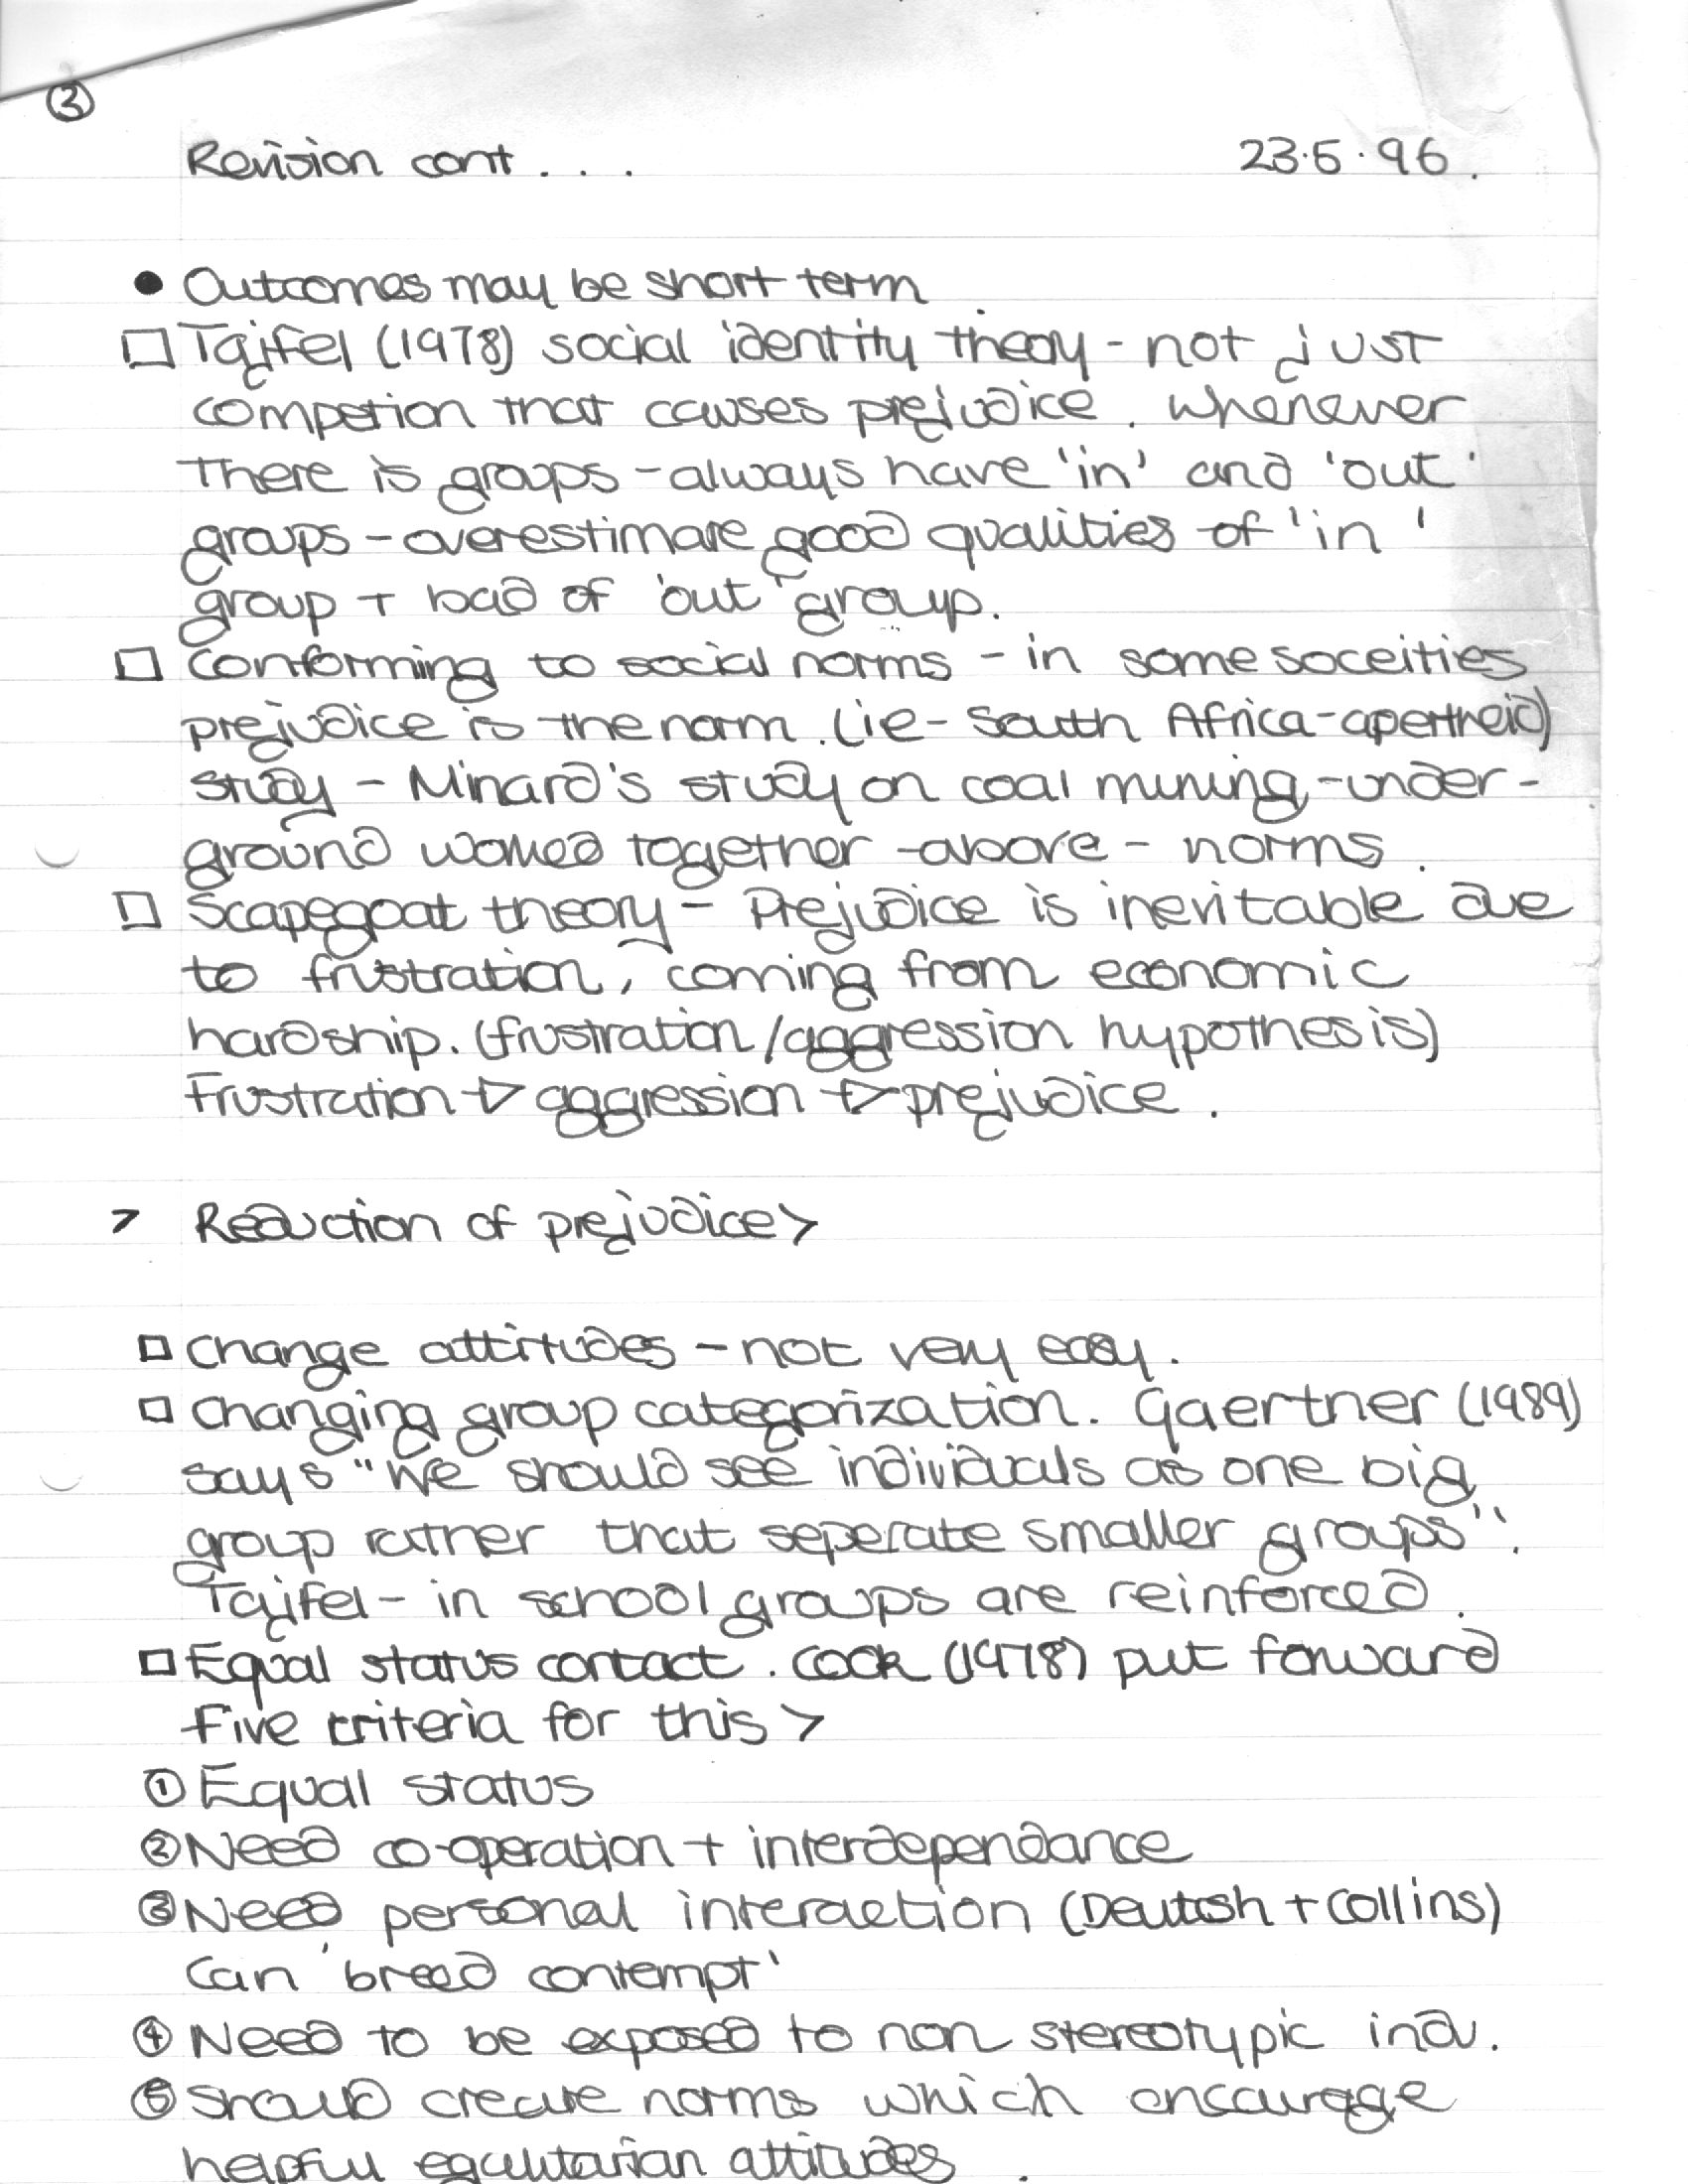 ③
Revision cont . . . 23.5.96.
● Outcomes may be short term
□ Tajfel (1978) social identity theory - not just
competion that causes prejudice. Whenever
there is groups - always have 'in' and 'out'
groups - overestimate good qualities of 'in'
group + bad of 'out' group.
□ Conforming to social norms - in some soceities
prejudice is the norm. (ie - South Africa - apertheid)
study - Minard's study on coal mining - under-
ground worked together - above - norms.
□ Scapegoat theory - Prejudice is inevitable due
to frustration, coming from economic
hardship. (frustration/aggression hypothesis)
Frustration → aggression → prejudice.
> Reduction of prejudice >
□ Change attitudes - not very easy.
□ Changing group categorization. Gaertner (1989)
says "We should see individuals as one big
group rather that seperate smaller groups".
Tajfel - in school groups are reinforced.
□ Equal status contact. Cook (1978) put forward
five criteria for this >
① Equal status
② Need co-operation + interdependance
③ Need personal interaction (Deutsh + Collins)
Can 'breed contempt'
④ Need to be exposed to non stereotypic indv.
⑤ Should create norms which encourage
helpful egalitarian attitudes.